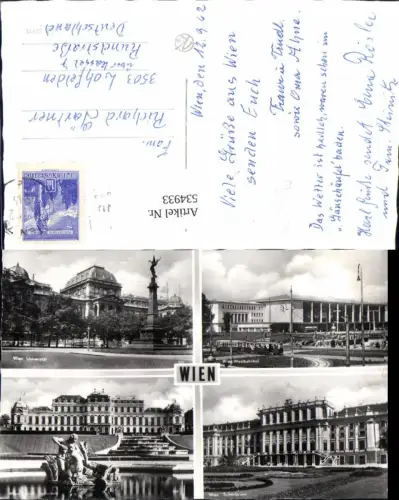 Wien, den 12.9.62
Viele Grüße aus Wien
senden Euch
Franz u. Trudl.
sowie Oma Ahne.
Das Wetter ist herrlich, waren schon im
"Gänsehäufel" baden.
Herzl. Grüße sendet Euch
und Fam.
Fam.
Richard Gärtner
3503 Lohfelden
über Kassel 7
Rundstraße
Deutschland
Artikel Nr.
534933
Wien Universität
WIEN
Wien Schönbrunn